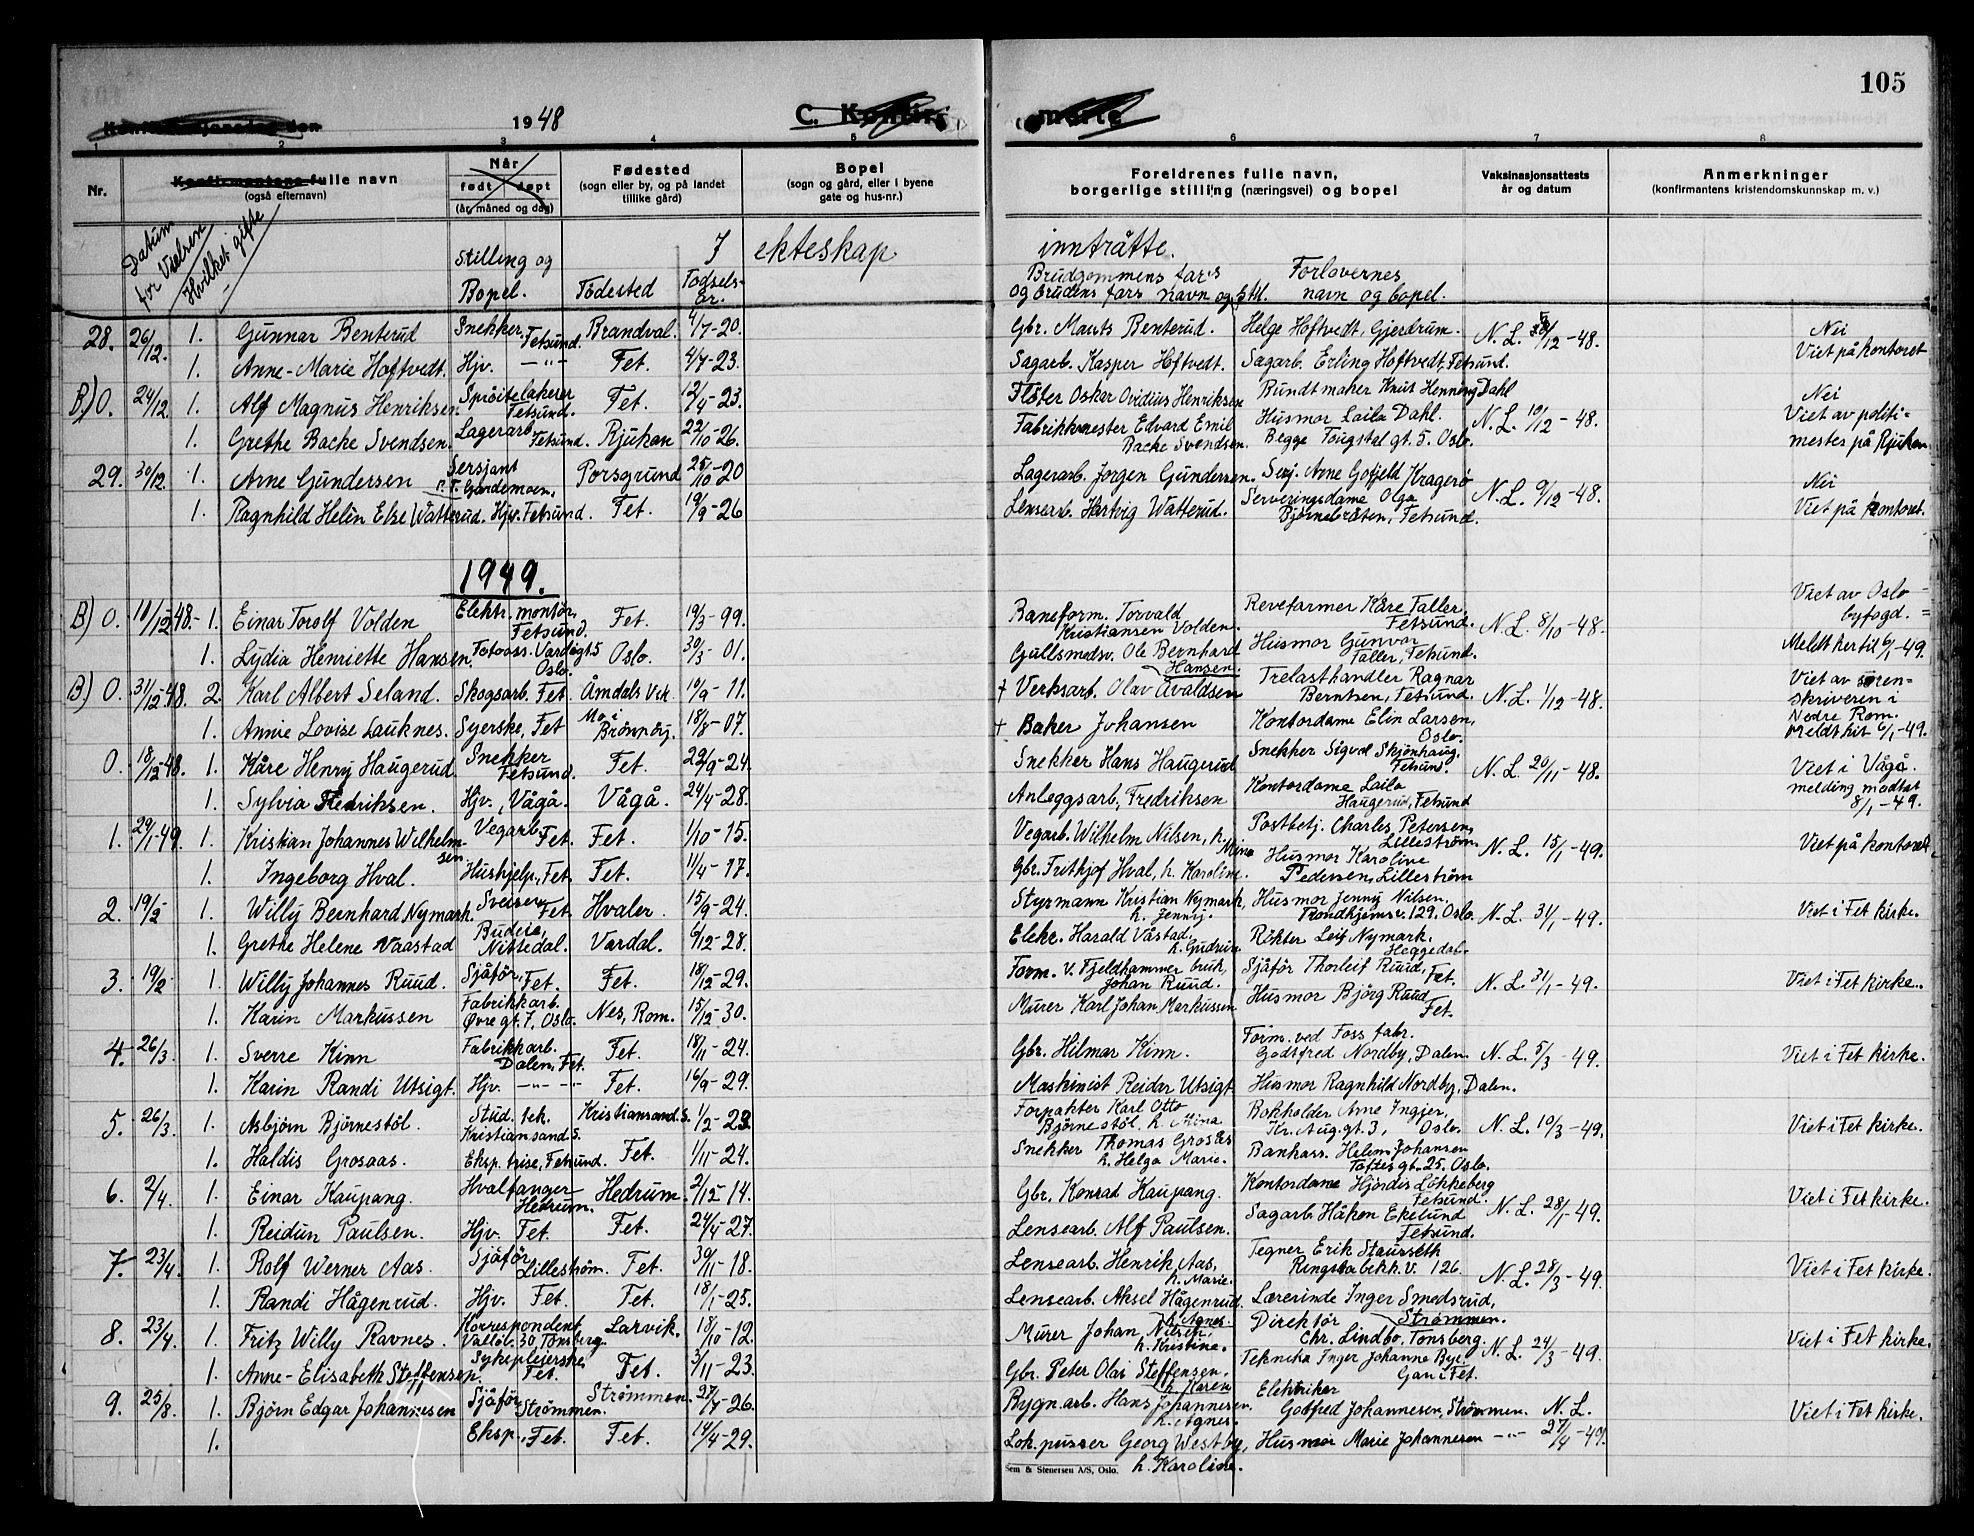 105
Konfirmasjonsdag den 1948 C. Konfir-
merte
1 2 3 4 5 6 7 8
Nr.
Konfirmantens fulle navn
(også efternavn)
Når
født døpt
(år, måned og dag)
Fødested
(sogn eller by, og på landet
tillike gård)
Bopel
(sogn og gård, eller i byene
gate og hus-nr.)
Foreldrenes fulle navn,
borgerlige stilling (næringsvei) og bopel
Vaksinasjonsattests
år og datum
Anmerkninger
(konfirmantens kristendomskunnskap m. v.)
Datum
for Vielsen
Hvilket gifte
Stilling og
Bopel.
Födested
Födsels-
år.
I ekteskap
inntrådte.
Brudgommens fars
og brudens fars navn og stil.
Forlovernes
navn og bopel.
28. 26/12. 1. Gunnar Benterud Snekker, Fetsund. Brandval. 4/7-20. Gbr. Mauts Benterud. Helge Hoftvedt, Gjerdrum. N.L. /12-48. Nei
1. Anne-Marie Hoftvedt. Hjv. —"— Fet. 4/7-23. Sagarb. Kasper Hoftvedt. Sagarb. Erling Hoftvedt, Fetsund. Viet på kontoret
B.) O. 24/12. 1. Alf Magnus Henriksen. Sprøitelakerer Fetsund. Fet. 12/4-23. Fløter Oskar Ovidius Henriksen Buntmaker Knut Henning Dahl Nei
1. Grethe Backe Svendsen. Lagerarb. Fetsund. Rjukan 22/10-26. Fabrikkmester Edvard Emil Backe Svendsen. Husmor Laila Dahl. Begge Tougstel gt. 5. Oslo. N.L. 10/12-48. Viet av politi=
mester på Rjukan
29. 30/12. 1. Arne Gundersen Sersjant p.T. Gardemoen. Porsgrund 25/10-20 Lagerarb. Jørgen Gundersen. Serj. Arne Gofjeld Kragerø N.L. 9/12-48. Nei
1. Ragnhild Helen Else Watterud. Hjv. Fetsund. Fet. 19/9-26 Lensearb. Hartvig Watterud. Serveringsdame Olga Bjørnebråten, Fetsund. Viet på kontoret.
1949.
B) O. 18/12-48.- 1. Einar Torolf Volden Elektr. montör, Fetsund. Fet. 19/3-99. Baneform. Torvald Kristiansen Volden. Revefarmer Kåre Faller, Fetsund. N.L. 8/10-48. Viet av Oslo
byfogd.
1. Lydia Henriette Hansen. Fotoass. Vardegt 5 Oslo. Oslo. 30/3-01. Gullsmedsv. Ole Bernhard Hansen. Husmor Gunvor Faller, Fetsund. Meldt hertil 6/1-49.
B) O. 31/12-48. 2. Karl Albert Seland. Skogsarb. Fet. Åmdals Verk. 10/9-11. † Verksarb. Olav Avaldsen Trelasthandler Ragnar Berntsen, Fetsund. N.L. 1/12-48. Viet av soren-
skriveren i
Nedre Rom.
1. Annie Lovise Lauknes. Syerske, Fet Mo i Brønnöy. 18/8-07. † Baker Johansen Kontordame Elin Larsen, Oslo. Meldt hit 6/1-49.
O. 18/12-48. 1. Kåre Henry Haugerud Snekker Fetsund. Fet. 22/9-24. Snekker Hans Haugerud Snekker Sigvd Skjønhaug, Fetsund. N.L. 20/11-48. Viet i Vågå.
1. Sylvia Fredriksen. Hjv., Vågå. Vågå. 24/4-28. Anleggsarb. Fredriksen Kontordame Laila Haugerud, Fetsund melding modtat
8/1-49.
1. 29/1-49. 1. Kristian Johannes Wilhelmsen Vegarb. Fet. Fet. 1/10-15. Vegarb. Wilhelm Nilsen, h. Mina Postbetj. Charles Petersen, Lilleström. N.L. 15/1-49. Viet på kontoret
1. Ingeborg Hval. Hushjelp, Fet. Fet. 11/4-17. Gbr. Frithjof Hval, h. Karoline. Husmor Karoline Pedersen, Lilleström
2. 19/2- 1. Willy Bernhard Nymark. Sveiser, Fet. Hvaler. 15/9-24. Styrmann Kristian Nymark, h. Jenny. Husmor Jenny Nilsen, Trondhjemsv. 129, Oslo. N.L. 31/1-49. Viet i Fet kirke.
1. Grethe Helene Vaastad Budeie, Nittedal. Vardal. 6/12-28. Elekr. Harald Våstad, h. Gudrun. Røkter Leif Nymark, Heggedal.
3. 19/2- 1. Willy Johannes Ruud. Sjåför, Fet. Fet. 18/12-29. Form. v. Fjeldhammer bruk, Johan Ruud. Sjåför Thorleif Ruud, Fet. N.L. 31/1-49. Viet i Fet kirke.
1. Karin Markussen Fabrikkarb. Øvre gt. 7, Oslo. Nes, Rom. 15/12-30. Murer Karl Johan Markussen Husmor Bjørg Ruud Fet.
4. 26/3. 1. Sverre Kinn Fabrikkarb. Dalen, Fet. Fet. 18/11-24. Gbr. Hilmar Kinn. Form. ved Foss fabr. Godtfred Nordby, Dalen. N.L. 5/3-49. Viet i Fet kirke.
1. Karin Randi Utsigt. Hjv. —"— Fet. 16/9-29. Maskinist Reidar Utsigt Husmor Ragnhild Nordby, Dalen.
5. 26/3. 1. Asbjørn Bjørnestöl. Stud. tek. Kristiansand S. Kristiansand S. 1/2-23. Forpakter Karl Otto Bjørnestöl. h. Mina Bokholder Arne Ingjer, Kr. Aug. gt. 3, Oslo. N.L. 10/3-49. Viet i Fet kirke.
1. Haldis Grosaas. Eksp. trise, Fetsund. Fet. 1/11-24. Snekker Thomas Grosås h. Helga Marie. Bankass. Helem Johansen Toftes gt. 25. Oslo.
6. 2/4. 1. Einar Kaupang. Hvalfanger Hedrum. Hedrum. 2/12-14. Gbr. Konrad Kaupang. Kontordame Hjördis Lökkeberg Fetsund. N.L. 28/1-49. Viet i Fet kirke.
1. Reidun Paulsen. Hjv. Fet. Fet. 24/4-27. Lensearb. Alf Paulsen. Sagarb. Håkon Ekelund Fetsund.
7. 23/4. 1. Rolf Werner Aas. Sjåför, Lilleström. Fet. 30/11-18. Lensearb. Henrik Aas, h. Marie. Tegner Erik Stausseth Ringstabekk v. 126. N.L. 28/3-49. Viet i Fet kirke.
1. Randi Hågenrud. Hjv. Fet. Fet. 18/1-25. Lensearb. Aksel Hågenrud. h. Agnes. Lærerinde Inger Smedsrud, Strömmen.
8. 23/4. 1. Fritz Willy Ravnes. Korrespondent, Valløv. 30 Tønsberg. Larvik. 18/10-12. Murer Johan Nilsen, h. Kristine. Direktör Chr. Lindbo, Tønsberg. N.L. 24/3-49. Viet i Fet kirke.
1. Anne-Elisabeth Steffensen. Sykepleierske, Fet. Fet. 3/11-23. Gbr. Peter Olai Steffensen. h. Karen Teknika Inger Johanne Bye, Gan i Fet.
9. 25/8. 1. Bjørn Edgar Johannesen Sjåför, Strömmen. Strømmen. 27/4-26. Bygn.arb. Hans Johannesen. h. Agnes. Elektriker Gotfred Johannesen, Strømmen. N.L. 27/4-49. Viet i Fet kirke.
1. Eksp., Fet. Fet. 14/4-29. Lok. pusser Georg Westby, h. Karoline. Husmor Marie Johannesen —"—
Sem & Stenersen A/S, Oslo.